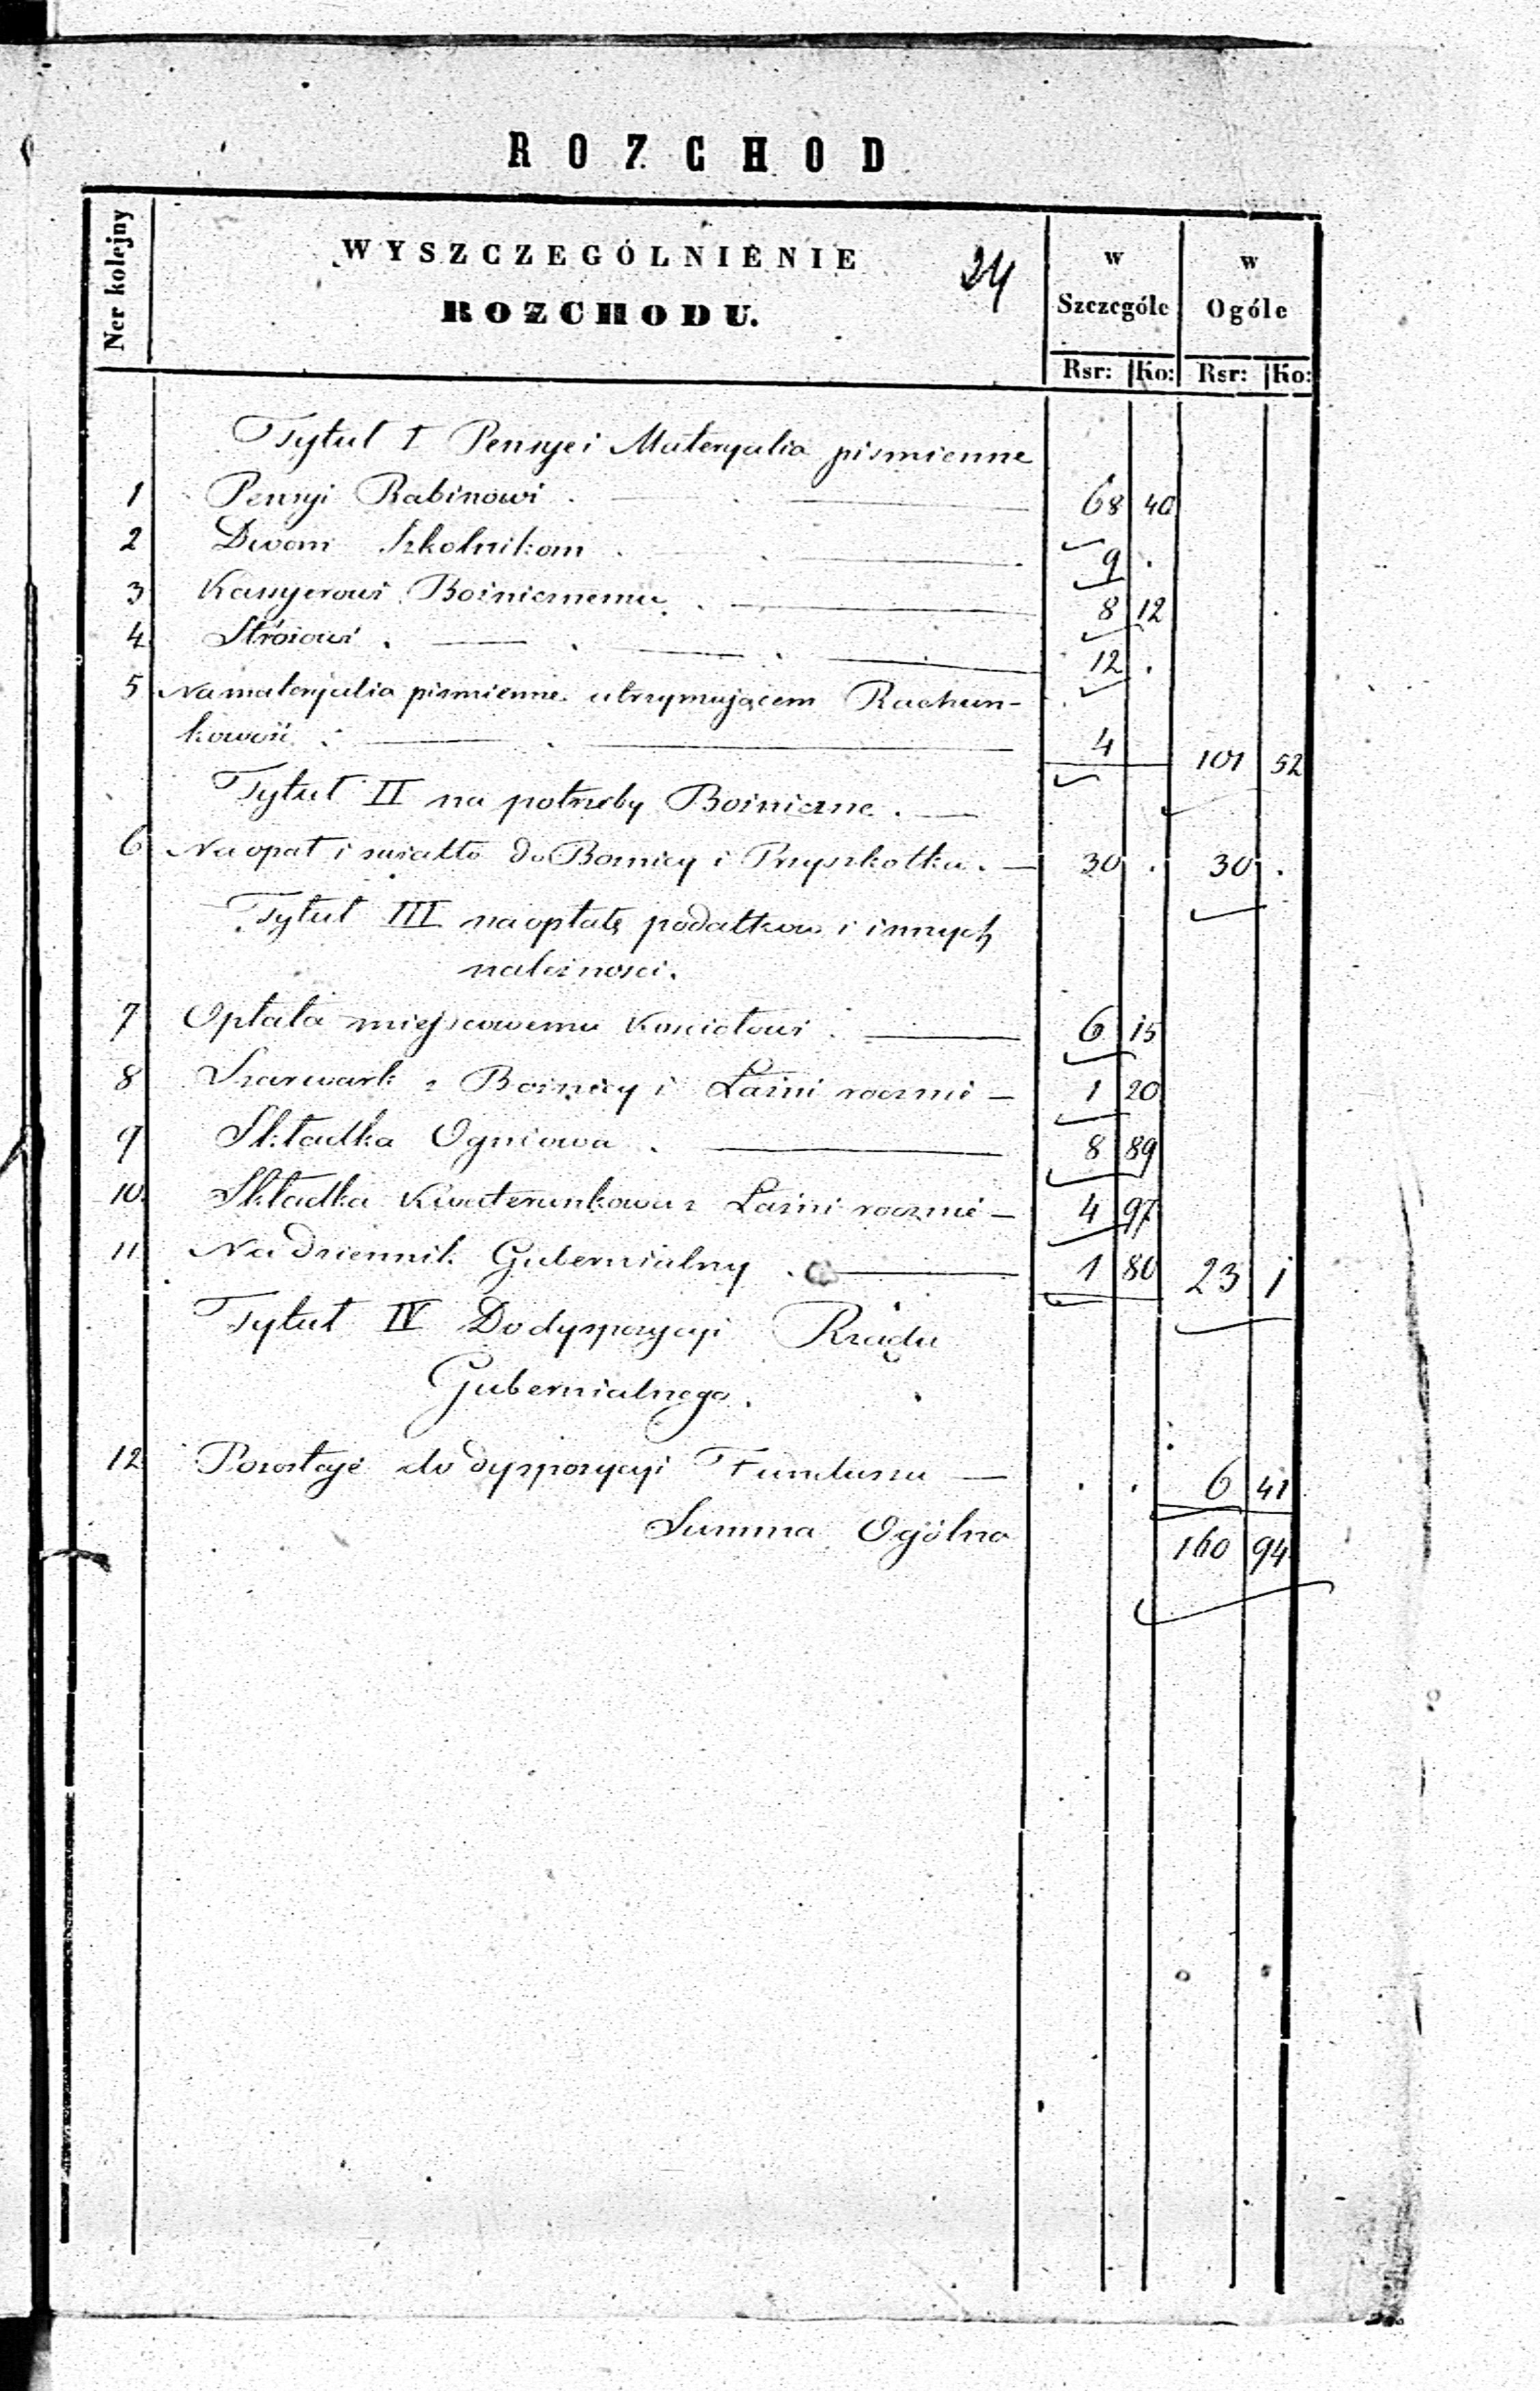 ROZCHOD
Ner kolejny
WYSZCZEGÓLNIENIE
ROZCHODU.
24
w Szczególe
w Ogóle
Rsr: Ko: Rsr: Ko:
Tytuł I Pensye i Materyalia pismienne
1 Pensyi Rabinowi . 68 40
2 Dwom Szkolnikom . 9 .
3 Kassyerowi Bożnicznemu . 8 12
4 Stróżowi . 12 .
5 Na materyalia pismienne utrzymującem Rachun-
kowość . 4 101 52
Tytuł II na potrzeby Bożniczne . —
6 Na opał i swiatło do Boznicy i Przyszkołka . — 30 . 30 .
Tytuł III na opłatę podatkow i innych
należnosci .
7 Opłata miejscowemu Kosciołowi . 6 15
8 Szarwark z Bożnicy i Łaźni rocznie — 1 20
9 Składka Ogniowa . 8 89
10. Składka Kwaterunkowa z Łaźni rocznie — 4 97
11 Na dziennik Gubernialny . 1 80 23 1
Tytuł IV Do dyspozycyi Rządu
Gubernialnego .
12 Pozostaje do dyspozycyi Funduszu — . . 6 41
Summa Ogólna 160 94